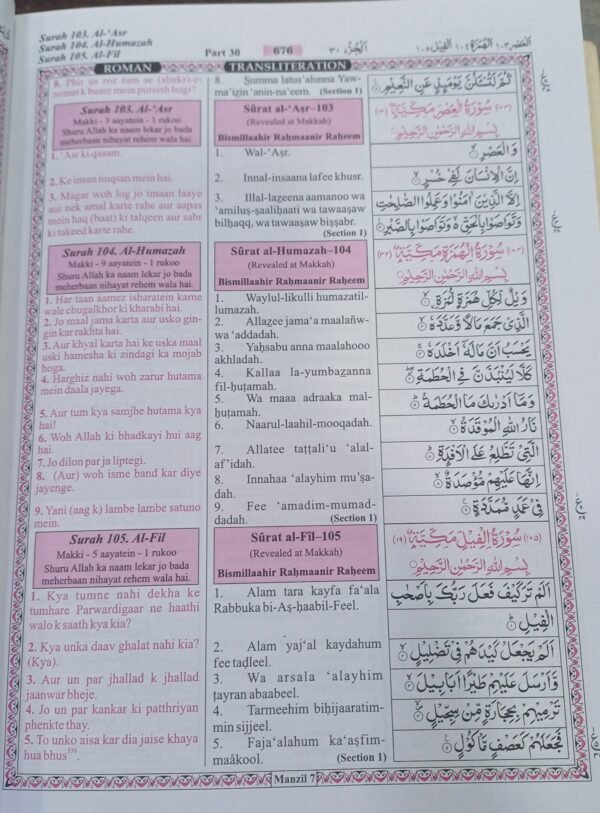 Surah 103. Al-'Asr
Surah 104. Al-Humazah
Surah 105. Al-Fil
Part 30
676
الجزء ٣٠
العصر ١٠٣ الهمزة ١٠٤ الفيل ١٠٥
ROMAN
TRANSLITERATION
8. Phir us roz tum se (shukr)-e-
nemat k baare mein pursish hogi?
Surah 103. Al-'Asr
Makki - 3 aayetein - 1 rukoo
Shuru Allah ka naam lekar jo bada
meherbaan nihayat rehem wala hai.
1. 'Asr ki qasam.
2. Ke insan nuqsan mein hai.
3. Magar woh log jo imaan laaye
aur nek amal karte rahe aur aapas
mein haq (baat) ki talqeen aur sabr
ki takeed karte rahe.
Surah 104. Al-Humazah
Makki - 9 aayetein - 1 rukoo
Shuru Allah ka naam lekar jo bada
meherbaan nihayat rehem wala hai.
1. Har taan aamez isharatein karne
wale chugalkhor ki kharabi hai.
2. Jo maal jama karta aur usko gin-
gin kar rakhta hai.
3. Aur khyal karta hai ke uska maal
uski hamesha ki zindagi ka mojab
hoga.
4. Harghiz nahi woh zarur hutama
mein daala jayega.
5. Aur tum kya samjhe hutama kya
hai!
6. Woh Allah ki bhadkayi hui aag
hai.
7. Jo dilon par ja liptegi.
8. (Aur) woh isme band kar diye
jayenge.
9. Yani (aag k) lambe lambe satuno
mein.
Surah 105. Al-Fil
Makki - 5 aayetein - 1 rukoo
Shuru Allah ka naam lekar jo bada
meherbaan nihayat rehem wala hai.
1. Kya tumne nahi dekha ke
tumhare Parwardigaar ne haathi
walo k saath kya kia?
2. Kya unka daav ghalat nahi kia?
(Kya).
3. Aur un par jhallad k jhallad
jaanwar bheje.
4. Jo un par kankar ki patthriyan
phenkte thay.
5. To unko aisa kar dia jaise khaya
hua bhus³³⁶.
8. Summa latus'alunna Yaw-
ma'izin 'anin-na'eem. (Section 1)
Sûrat al-'Aṣr–103
(Revealed at Makkah)
Bismillaahir Raḥmaanir Raḥeem
1. Wal-'Aṣr.
2. Innal-insaana lafee khusr.
3. Illal-lazeena aamanoo wa
'amiluṣ-ṣaaliḥaati wa tawaaṣaw
bilḥaqq, wa tawaaṣaw biṣṣabr.
(Section 1)
Sûrat al-Humazah–104
(Revealed at Makkah)
Bismillaahir Raḥmaanir Raḥeem
1. Waylul-likulli humazatil-
lumazah.
2. Allazee jama'a maalañw-
wa 'addadah.
3. Yaḥsabu anna maalahooo
akhladah.
4. Kallaa la-yumbaẓanna
fil-ḥuṭamah.
5. Wa maaa adraaka mal-
ḥuṭamah.
6. Naarul-laahil-mooqadah.
7. Allatee taṭṭali'u 'alal-
af'idah.
8. Innahaa 'alayhim mu'ṣa-
dah.
9. Fee 'amadim-mumad-
dadah. (Section 1)
Sûrat al-Fîl–105
(Revealed at Makkah)
Bismillaahir Raḥmaanir Raḥeem
1. Alam tara kayfa fa'ala
Rabbuka bi-Aṣ-ḥaabil-Feel.
2. Alam yaj'al kaydahum
fee taḍleel.
3. Wa arsala 'alayhim
ṭayran abaabeel.
4. Tarmeehim biḥijaaratim-
min sijjeel.
5. Faja'alahum ka'aṣfim-
maâkool. (Section 1)
ثُمَّ لَتُسْـَٔلُنَّ يَوْمَئِذٍ عَنِ النَّعِيْمِ ۝٨
(١٠٣) سُوْرَةُ الْعَصْرِ مَكِّيَّةٌ (١٣)
بِسْمِ اللّٰهِ الرَّحْمٰنِ الرَّحِيْمِ
وَالْعَصْرِ ۝١
اِنَّ الْاِنْسَانَ لَفِيْ خُسْرٍ ۝٢
اِلَّا الَّذِيْنَ اٰمَنُوْا وَعَمِلُوا الصّٰلِحٰتِ
وَتَوَاصَوْا بِالْحَقِّ ۙ وَتَوَاصَوْا بِالصَّبْرِ ۝٣
سُوْرَةُ الْهُمَزَةِ مَكِّيَّةٌ (٣٢)
بِسْمِ اللّٰهِ الرَّحْمٰنِ الرَّحِيْمِ
وَيْلٌ لِّكُلِّ هُمَزَةٍ لُّمَزَةٍ ۝١
الَّذِيْ جَمَعَ مَالًا وَّعَدَّدَهٗ ۝٢
يَحْسَبُ اَنَّ مَالَهٗٓ اَخْلَدَهٗ ۝٣
كَلَّا لَيُنْۢبَذَنَّ فِي الْحُطَمَةِ ۝٤
وَمَآ اَدْرٰىكَ مَا الْحُطَمَةُ ۝٥
نَارُ اللّٰهِ الْمُوْقَدَةُ ۝٦
الَّتِيْ تَطَّلِعُ عَلَى الْاَفْـِٕدَةِ ۝٧
اِنَّهَا عَلَيْهِمْ مُّؤْصَدَةٌ ۝٨
فِيْ عَمَدٍ مُّمَدَّدَةٍ ۝٩
(١٠٥) سُوْرَةُ الْفِيْلِ مَكِّيَّةٌ (١٩)
بِسْمِ اللّٰهِ الرَّحْمٰنِ الرَّحِيْمِ
اَلَمْ تَرَ كَيْفَ فَعَلَ رَبُّكَ بِاَصْحٰبِ
الْفِيْلِ ۝١
اَلَمْ يَجْعَلْ كَيْدَهُمْ فِيْ تَضْلِيْلٍ ۝٢
وَّاَرْسَلَ عَلَيْهِمْ طَيْرًا اَبَابِيْلَ ۝٣
تَرْمِيْهِمْ بِحِجَارَةٍ مِّنْ سِجِّيْلٍ ۝٤
فَجَعَلَهُمْ كَعَصْفٍ مَّاْكُوْلٍ ۝٥
Manzil 7